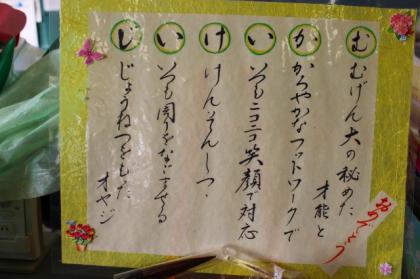 む
むげん大の秘めた
才能と
か
かろやかなフットワークで
い
いつもニコニコ笑顔で対応
け
けんそんしつつ
い
いつも周りをなごませる
じ
じょうねつをもった
オヤジ
おめでとう